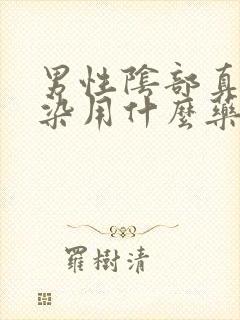 男性陰部真
染用什麼藥
羅樹清